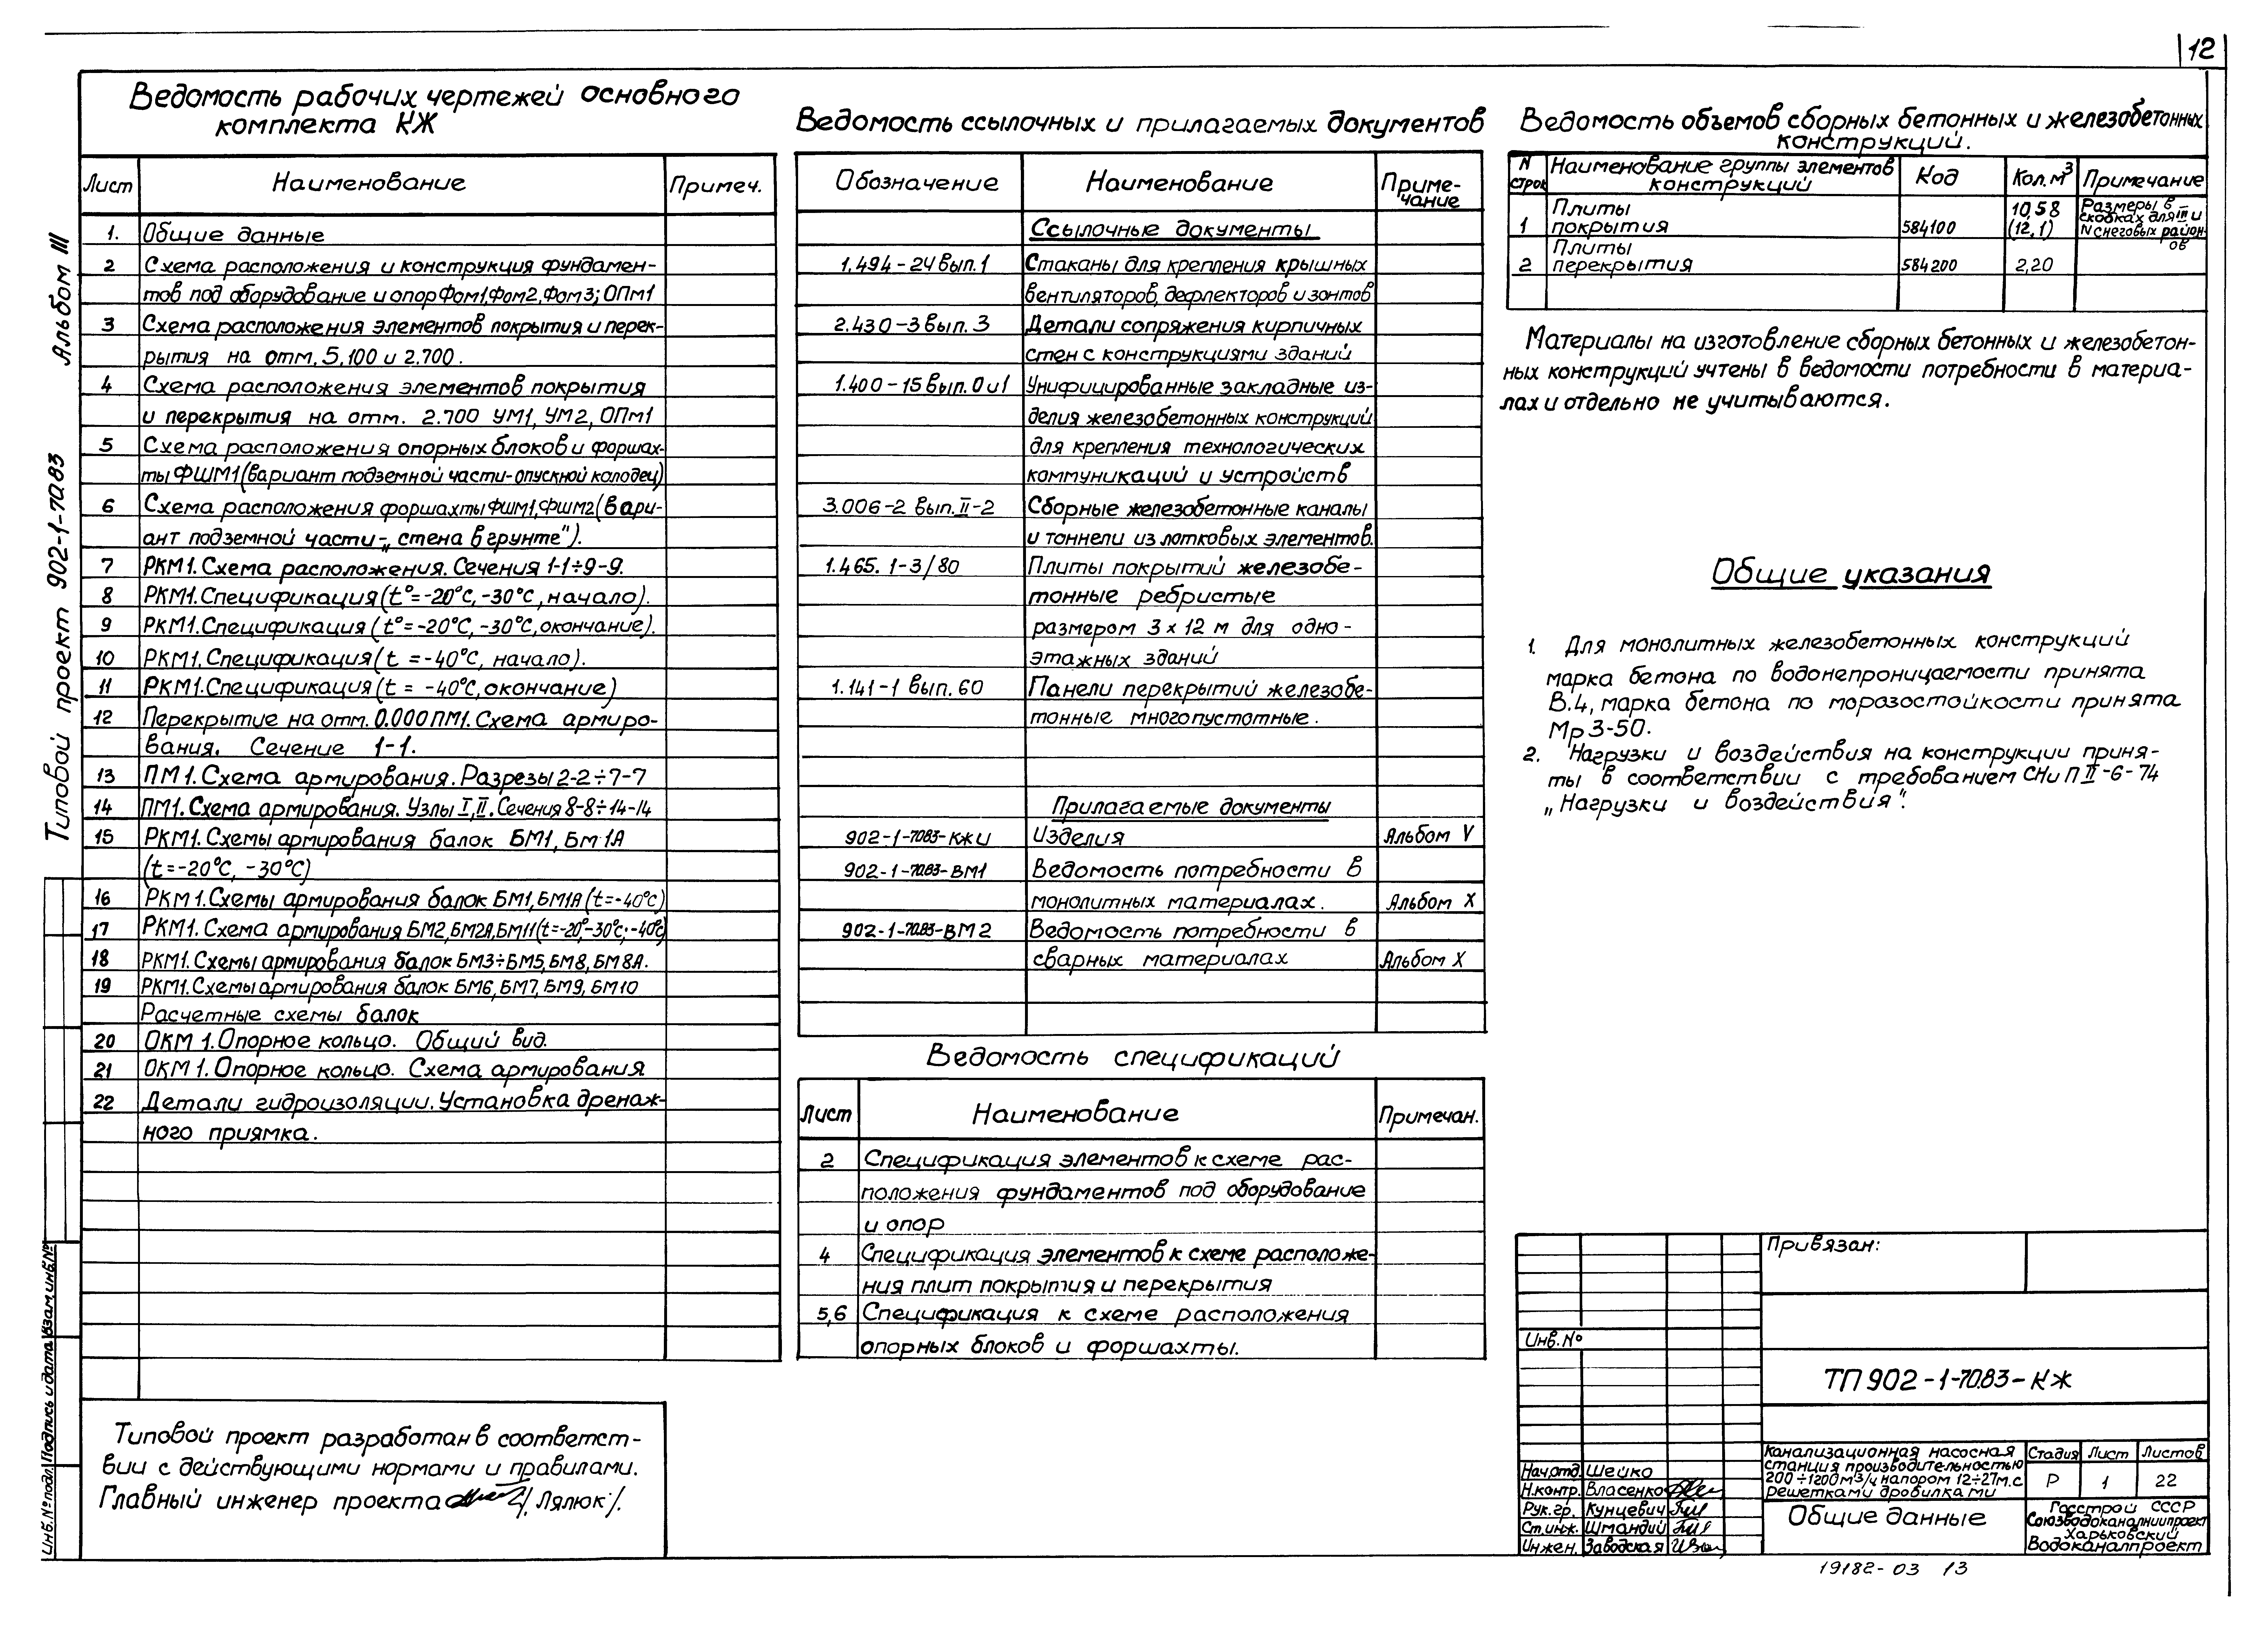 12
Ведомость рабочих чертежей основного
комплекта КЖ
Лист Наименование Примеч.
1. Общие данные
2 Схема расположения и конструкция фундамен-
тов под оборудование и опор Фом1, Фом2, Фом3; ОПм1
3 Схема расположения элементов покрытия и перек-
рытия на отм. 5.100 и 2.700.
4 Схема расположения элементов покрытия
и перекрытия на отм. 2.700 УМ1, УМ2, ОПм1
5 Схема расположения опорных блоков и форшах-
ты ФШМ1 (вариант подземной части-опускной колодец)
6 Схема расположения форшахты ФШМ1, ФШМ2 (вари-
ант подземной части-„стена в грунте").
7 РКМ1. Схема расположения. Сечения 1-1÷9-9.
8 РКМ1. Спецификация (t°=-20°С, -30°С, начало).
9 РКМ1. Спецификация (t°=-20°С, -30°С, окончание).
10 РКМ1. Спецификация (t =-40°С, начало).
11 РКМ1. Спецификация (t = -40°С, окончание)
12 Перекрытие на отм. 0.000 ПМ1. Схема армиро-
вания. Сечение 1-1.
13 ПМ1. Схема армирования. Разрезы 2-2÷7-7
14 ПМ1. Схема армирования. Узлы I, II. Сечения 8-8÷14-14
15 РКМ1. Схемы армирования балок БМ1, Бм 1А
(t=-20°С, -30°С)
16 РКМ1. Схемы армирования балок БМ1, БМ1А (t=-40°С)
17 РКМ1. Схема армирования БМ2, БМ2А, БМ11 (t=-20°,-30°С;-40°С)
18 РКМ1. Схемы армирования балок БМ3÷БМ5, БМ8, БМ8А.
19 РКМ1. Схемы армирования балок БМ6, БМ7, БМ9, БМ10
Расчетные схемы балок
20 ОКМ 1. Опорное кольцо. Общий вид.
21 ОКМ 1. Опорное кольцо. Схема армирования
22 Детали гидроизоляции. Установка дренаж-
ного приямка.
Типовой проект разработан в соответст-
вии с действующими нормами и правилами.
Главный инженер проекта /Лялюк/.
Ведомость ссылочных и прилагаемых документов
Обозначение Наименование Приме-
чание
Ссылочные документы
1.494-24 вып.1 Стаканы для крепления крышных
вентиляторов, дефлекторов и зонтов
2.430-3 вып. 3 Детали сопряжения кирпичных
стен с конструкциями зданий
1.400-15 вып. 0 и 1 Унифицированные закладные из-
делия железобетонных конструкций
для крепления технологических
коммуникаций и устройств
3.006-2 вып. II-2 Сборные железобетонные каналы
и тоннели из лотковых элементов.
1.465. 1-3/80 Плиты покрытий железобе-
тонные ребристые
размером 3 х 12 м для одно-
этажных зданий
1.141-1 вып. 60 Панели перекрытий железобе-
тонные многопустотные.
Прилагаемые документы
902-1-70.83-КЖИ Изделия Альбом V
902-1-70.83-ВМ1 Ведомость потребности в
монолитных материалах. Альбом X
902-1-70.83-ВМ2 Ведомость потребности в
сварных материалах Альбом X
Ведомость спецификаций
Лист Наименование Примечан.
2 Спецификация элементов к схеме рас-
положения фундаментов под оборудование
и опор
4 Спецификация элементов к схеме расположе-
ния плит покрытия и перекрытия
5,6 Спецификация к схеме расположения
опорных блоков и форшахты.
Ведомость объемов сборных бетонных и железобетонных
конструкций.
N
строк Наименование группы элементов
конструкций Код Кол. м³ Примечание
1 Плиты
покрытия 584100 10,58
(12,1) Размеры в
скобках для III и
IV снеговых район-
ов
2 Плиты
перекрытия 584200 2,20
Материалы на изготовление сборных бетонных и железобетон-
ных конструкций учтены в ведомости потребности в материа-
лах и отдельно не учитываются.
Общие указания
1. Для монолитных железобетонных конструкций
марка бетона по водонепроницаемости принята
В.4, марка бетона по морозостойкости принята
Мрз-50.
2. Нагрузки и воздействия на конструкции приня-
ты в соответствии с требованием СНиП II-6-74
„Нагрузки и воздействия".
Привязан:
Инв. №
ТП 902-1-70.83-КЖ
Канализационная насосная
станция производительностью
200÷1200м³/ч напором 12÷27м. с
решетками дробилками
Стадия Лист Листов
Р 1 22
Нач.отд. Шейко
Н.контр. Власенко
Рук.гр. Кунцевич
Ст.инж. Шмандий
Инжен. Заводская
Общие данные
Госстрой СССР
Союзводоканалниипроект
Харьковский
Водоканалпроект
19182-03 13
Типовой проект 902-1-70.83 Альбом III
Инв.№подл. Подпись и дата Взам.инв.№